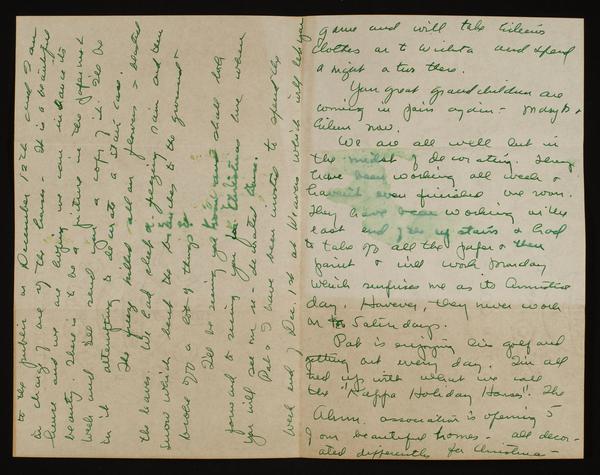 game and will take Eileen's
clothes on to Wichita and spend
a night or two there.
Your great grandchildren are
coming in pairs again - Mary B &
Eileen now.
We are all well but in
the midst of decorating.
have been working all week &
haven't even finished one room.
They have been working in the
east end of the up stairs & had
to take off all the paper & then
paint & will work Monday
which surprises me as its Armistice
day. However, they never work
on Saturdays.
Pat is enjoying his golf and
getting out every day. I'm all
tied up with what we call
the "Kappa Holiday House". The
Alum. association is opening 5
of our beautiful homes - all decor-
ated differently for Christmas -
to the public on December 12th and I am
in charge of one of the homes - It is a beautiful
house and we are hoping we can enhance its
beauty. There is to be a picture in the paper next
week and I'll send you a copy of it. I'll be
in it attempting to decorate a stair case.
The freeze killed all our flowers - blasted
the leaves. We had sleet & freezing rain and then
snow which bent the branches to the ground &
broke off a lot of things.
I'll be seeing you and shall look
forward to seeing you when
you will see our re-decorated house.
Pat & I have been invited to spend the
week end of Dec. 1st at Weavers which will let you